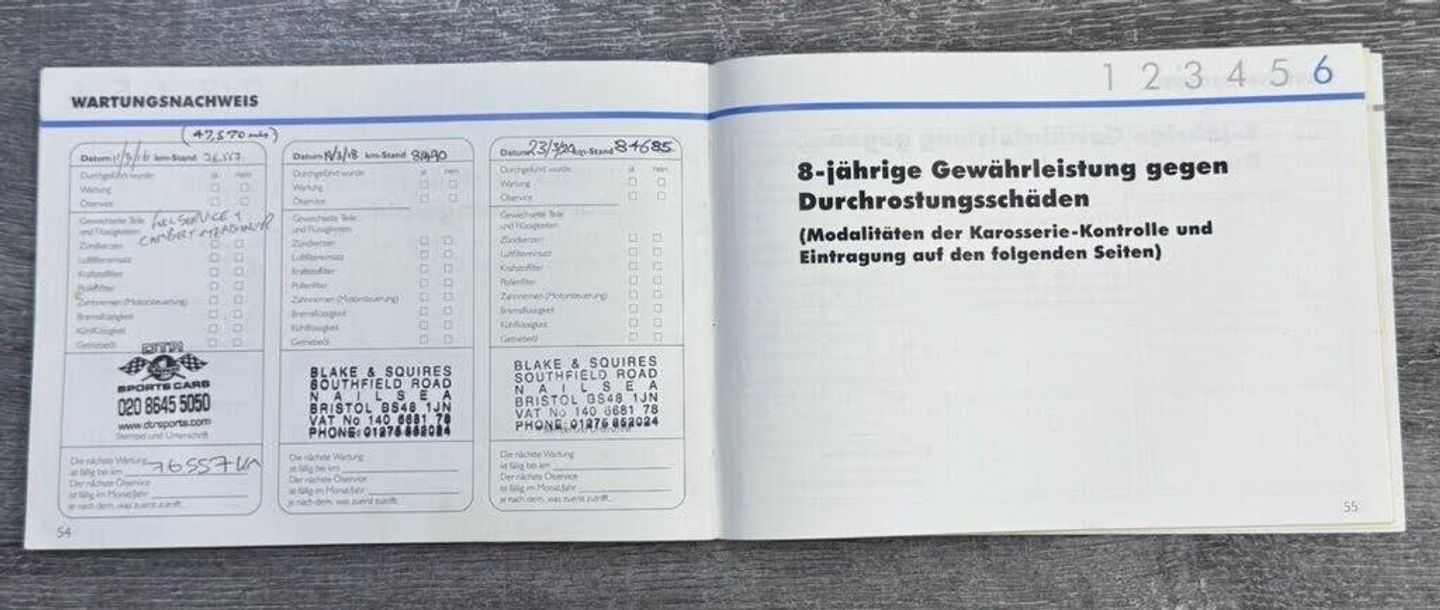 WARTUNGSNACHWEIS
(47,570 mls)
Datum 11/3/16 km-Stand 76.557
Durchgeführt wurde: ja nein
Wartung
Ölservice
Gewechselte Teile
und Flüssigkeiten
FULL SERVICE +
Zündkerzen
Luftfiltereinsatz
Kraftstofffilter
Pollenfilter
Zahnriemen (Motorsteuerung)
Bremsflüssigkeit
Kühlflüssigkeit
Getriebeöl
DTR
SPORTS CARS
020 8645 5050
www.dtrsports.com
Stempel und Unterschrift
Die nächste Wartung
ist fällig bei km 76557 km
Der nächste Ölservice
ist fällig im Monat/Jahr
je nach dem, was zuerst zutrifft.
Datum /3/18 km-Stand
Durchgeführt wurde: ja nein
Wartung
Ölservice
Gewechselte Teile
und Flüssigkeiten
Zündkerzen
Luftfiltereinsatz
Kraftstofffilter
Pollenfilter
Zahnriemen (Motorsteuerung)
Bremsflüssigkeit
Kühlflüssigkeit
Getriebeöl
BLAKE & SQUIRES
SOUTHFIELD ROAD
NAILSEA
BRISTOL BS48 1JN
VAT No 140 6681 78
PHONE: 01275 852024
Die nächste Wartung
ist fällig bei km
Der nächste Ölservice
ist fällig im Monat/Jahr
je nach dem, was zuerst zutrifft.
Datum 23/3/20 km-Stand 84685
Durchgeführt wurde: ja nein
Wartung
Ölservice
Gewechselte Teile
und Flüssigkeiten
Zündkerzen
Luftfiltereinsatz
Kraftstofffilter
Pollenfilter
Zahnriemen (Motorsteuerung)
Bremsflüssigkeit
Kühlflüssigkeit
Getriebeöl
BLAKE & SQUIRES
SOUTHFIELD ROAD
NAILSEA
BRISTOL BS48 1JN
VAT No 140 6681 78
PHONE: 01275 852024
Die nächste Wartung
ist fällig bei km
Der nächste Ölservice
ist fällig im Monat/Jahr
je nach dem, was zuerst zutrifft.
54
1 2 3 4 5 6
8-jährige Gewährleistung gegen
Durchrostungsschäden
(Modalitäten der Karosserie-Kontrolle und
Eintragung auf den folgenden Seiten)
55